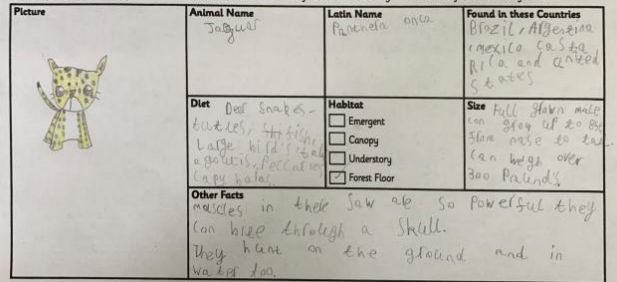 Picture
Animal Name
Jaguar
Latin Name
Panthera onca
Found in these Countries
Brazil, Argentina
mexico Costa
Rica and united
States
Diet Deer Snakes-
tutles, fish,
Large birds
agoutis, Peccaries
Capy baras.
Habitat
Emergent
Canopy
Understory
Forest Floor
Size Full grown male
can grow up to
from nose to tail.
Can weigh over
300 Pounds.
Other Facts
muscles in their Jaw are so Powerful they
Can bite through a Skull.
They hunt on the ground and in
water too.